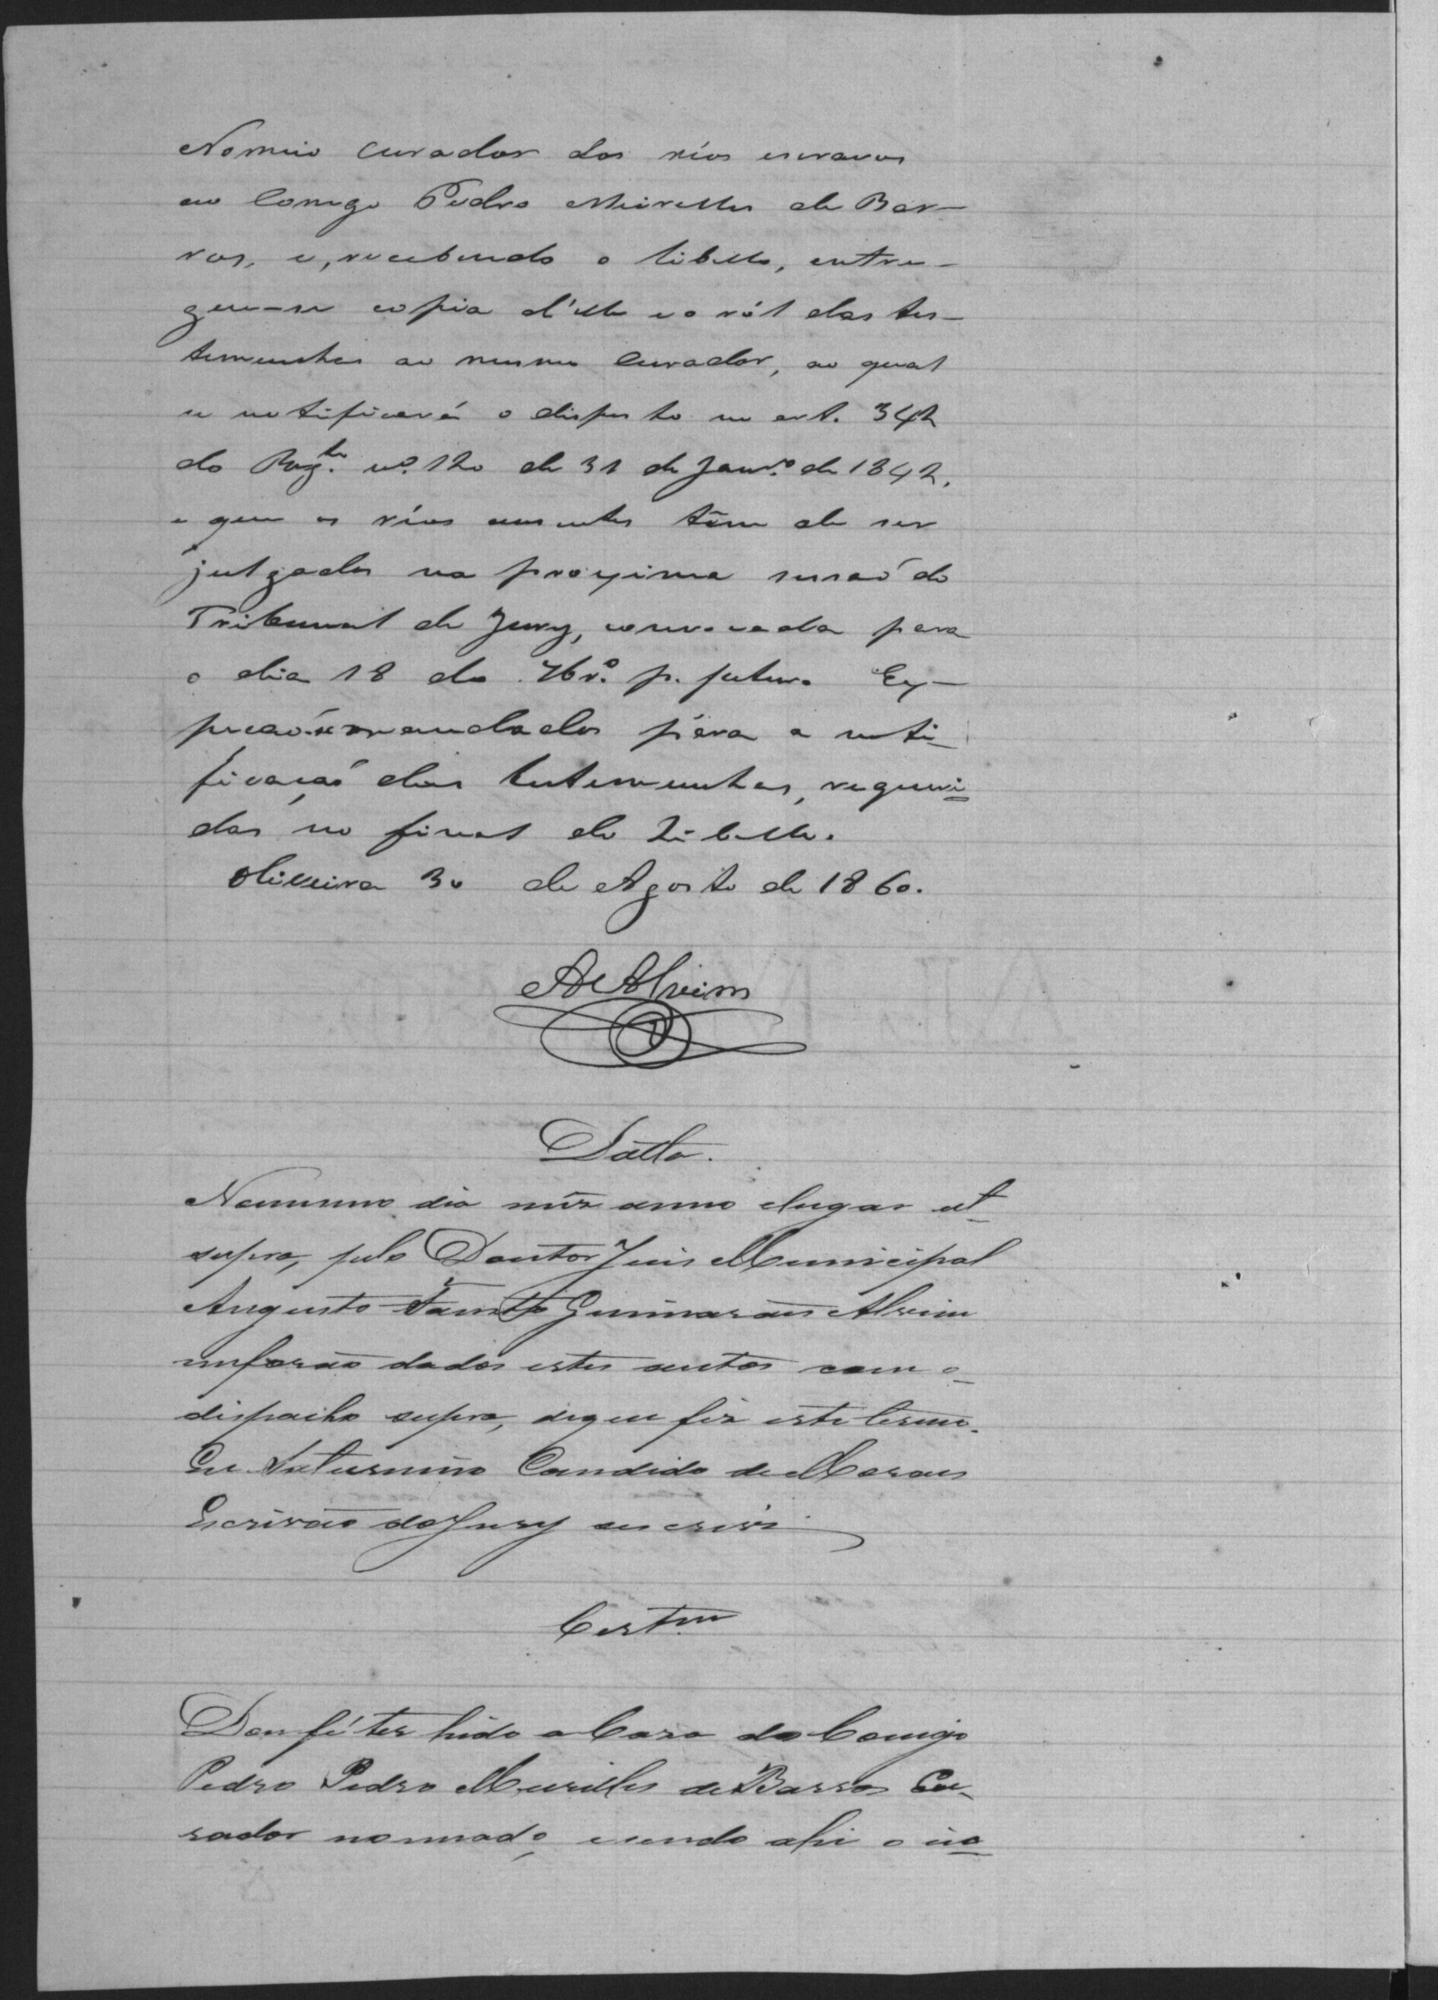 Nomeio curador dos réos escravos
ao Conego Pedro Meirelles de Bar-
ros, e, recebendo o libello, entre-
gue-se copia d'elle e o ról das tes-
temunhas ao mesmo Curador, ao qual
se notificará o disposto no art. 342
do Reg.to nº. 120 de 31 de Janr.o de 1842,
e que os réos ausentes têm de ser
julgados na proxima sessaõ do
Tribunal do Jury, convocada para
o dia 18 de 7br.o p. futuro. Ex-
peçaõ-se mandados pára a noti-
ficaçaõ das testemunhas, requeri-
das no final do Libello.
Oliveira 30 de Agosto de 1860.
A Alvim
Datta.
No mesmo dia mêz anno e lugar ut
supra, pelo Doutor Juis Municipal
Augusto Guimarães Alvim
me forão dados estes autos com o
dispacho supra, de que fiz este termo.
Eu Saturnino Candido de Moraes
Escrivão do Jury escrivi
Cert.m
Dou fé ter hido a Caza do Conigo
Pedro Pedro Meirilles de Barros Cu-
rador nomeado, e sendo ahi o in